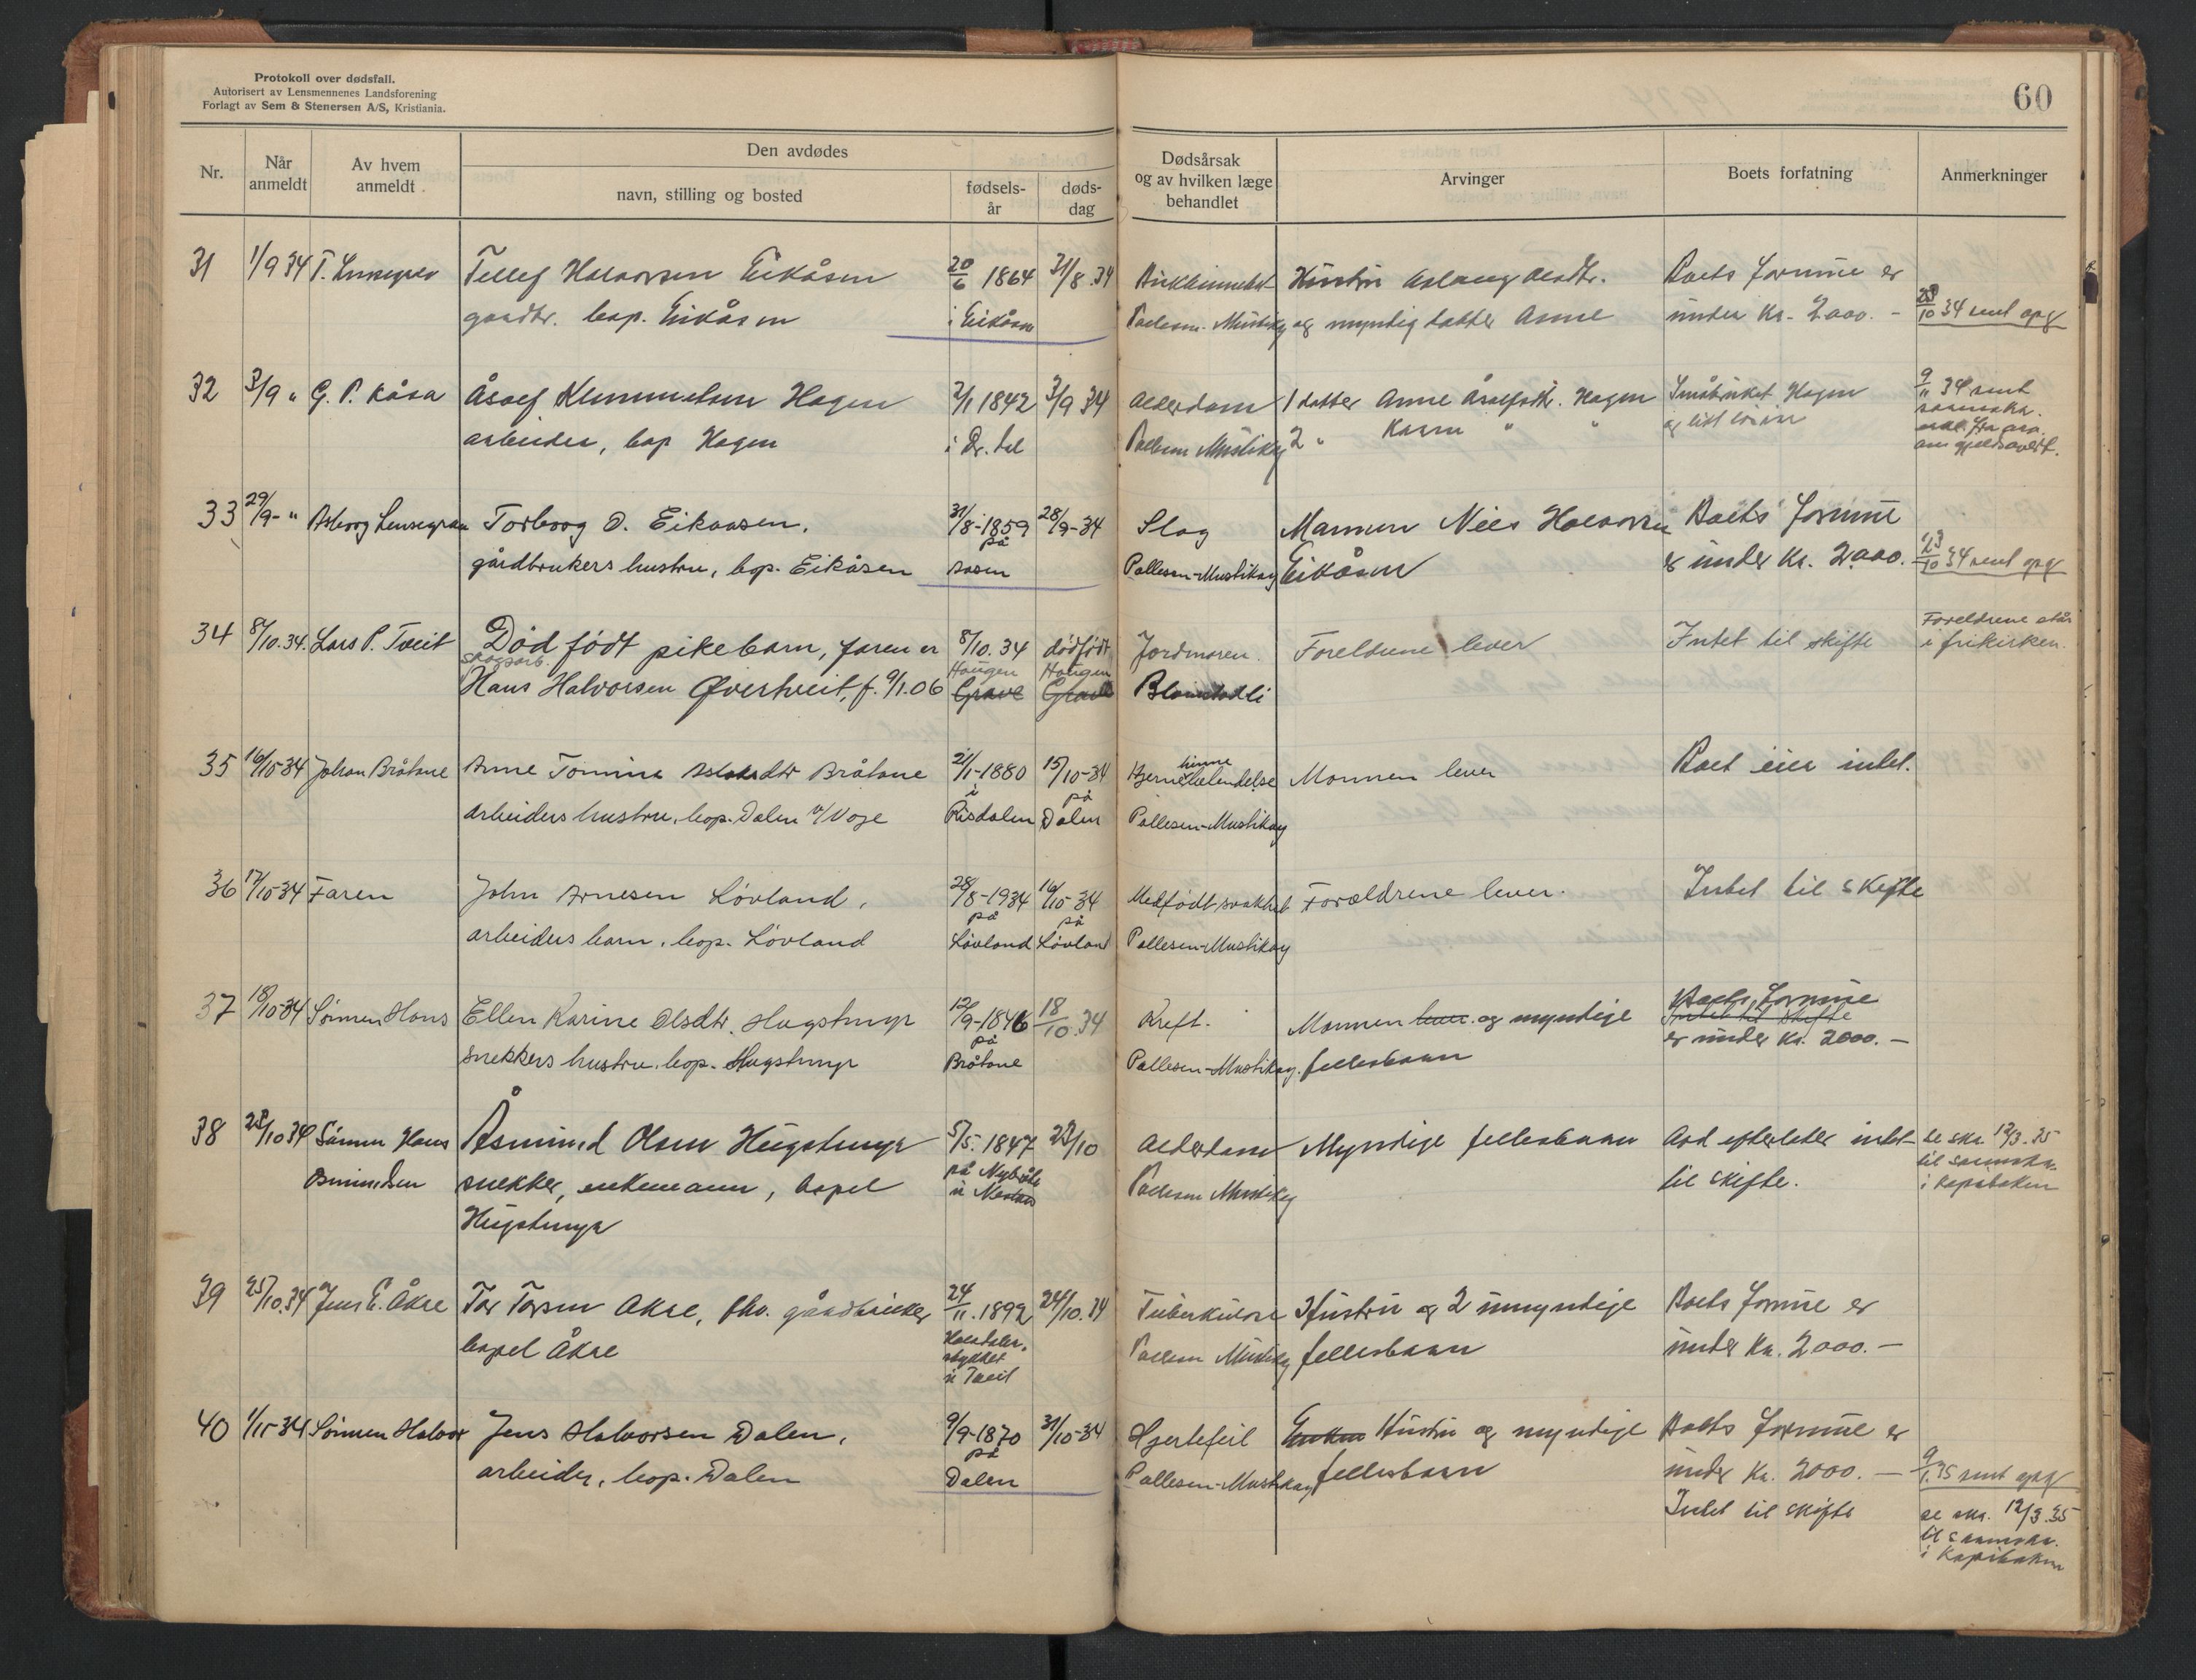 Protokoll over dødsfall.
Autorisert av Lensmennenes Landsforening
Forlagt av Sem & Stenersen A/S, Kristiania.
60
Nr.
Når anmeldt
Av hvem anmeldt
Den avdødes
navn, stilling og bosted
fødsels-år
døds-dag
Dødsårsak og av hvilken læge behandlet
Arvinger
Boets forfatning
Anmerkninger
31 1/9 34 Tellef Halvorsen Eikåsen 20/6 1864 31/8.34 Hustru Aslaug Olsdtr. Boets formue er
gårdbr. bop. Eikåsen i Eikåsen Pallesen-Mustikay og myndig datter Anne under Kr. 2000.- 23/10 34 sent opg
32 3/9 " G. P. Kåsa Åsolf Klemmetsen Hagen 2/1 1842 3/9 34 Alderdom 1 datter Anne Åsolfsdtr. Hagen Småbruket Hagen 9/11 34 sent
arbeider, bop Hagen i Pallesen Mustikay 2 " Karen " " og litt
33 29/9-" Asborg Lensegrav Torborg O. Eikaasen. 31/8-1859 28/9-34 Slag Mannen Niels Halvorsen Boets formue
gårdbrukers hustru, bop. Eikåsen på Åsen Pallesen-Mustikay Eikåsen er under Kr. 2000. 23/10 34 sent opg
34 8/10.34. Lars P. Tveit Død født pikebarn, faren er 8/10.34 dødfødt Jordmoren. Foreldrene lever Intet til skifte Foreldrene står
skogsarb. Haugen Haugen i frikirken.
Hans Halvorsen Øvertveit, f. 9/1.06 Grave Grave Blomstadli
35 16/10-34 Johan Bråtane Anne Tomine Aslaksdtr Bråtane 21/1-1880 15/10-34 Hjernehinnebetendelse Mannen lever Boet eier intet.
arbeiders hustru, bop. Dalen v/Voge i Risdalen på Dalen Pallesen-Mustikay
36 17/10-34 Faren John Arnesen Løvland, 28/8-1934 16/10-34 Medfødt svakhet Forældrene lever. Intet til skifte
arbeiders barn, bop. Løvland på Løvland på Løvland Pallesen-Mustikay
37 18/10-34 Sønnen Hans Ellen Karine Olsdtr. Hugstmyr 12/9-1846 18/10.34 Kreft. Mannen lever. og myndige Boets formue
Intet til skifte
snekkers hustru, bop. Hugstmyr på Bråtane Pallesen-Mustikay. fellesbarn er under Kr. 2000.-
38 23/10 34 Sønnen Hans Åsmund Olsen Hugstmyr 5/5.1847 23/10 Alderdom Myndige fellesbarn Avd efterlater intet se skr. 12/3.35
Osmundsen snekker, enkemann, bopel på Pallesen Mustikay til skifte. til sorenskr.
Hugstmyr i kopiboken
39 25/10.34 Jens Åkre Tor Torsen Åkre, fhv. gårdbruker 24/11.1892 24/10.34 Tuberkulose Hustru og 2 umyndige Boets formue er
bopel Åkre Pallesen Mustikay fellesbarn under Kr. 2000.-
u Tveit
40 1/11-34 Sønnen Halvor Jens Halvorsen Dalen, 9/9-1870 31/10-34 Hjertefeil Enken Hustru og myndige Boets formue er
arbeider, bop. Dalen på Dalen Pallesen-Mustikay fellesbarn under Kr. 2000.- 9/1.35 sent opg
Intet til skifte se skr. 12/3.35
til sorenskr.
i kopiboken